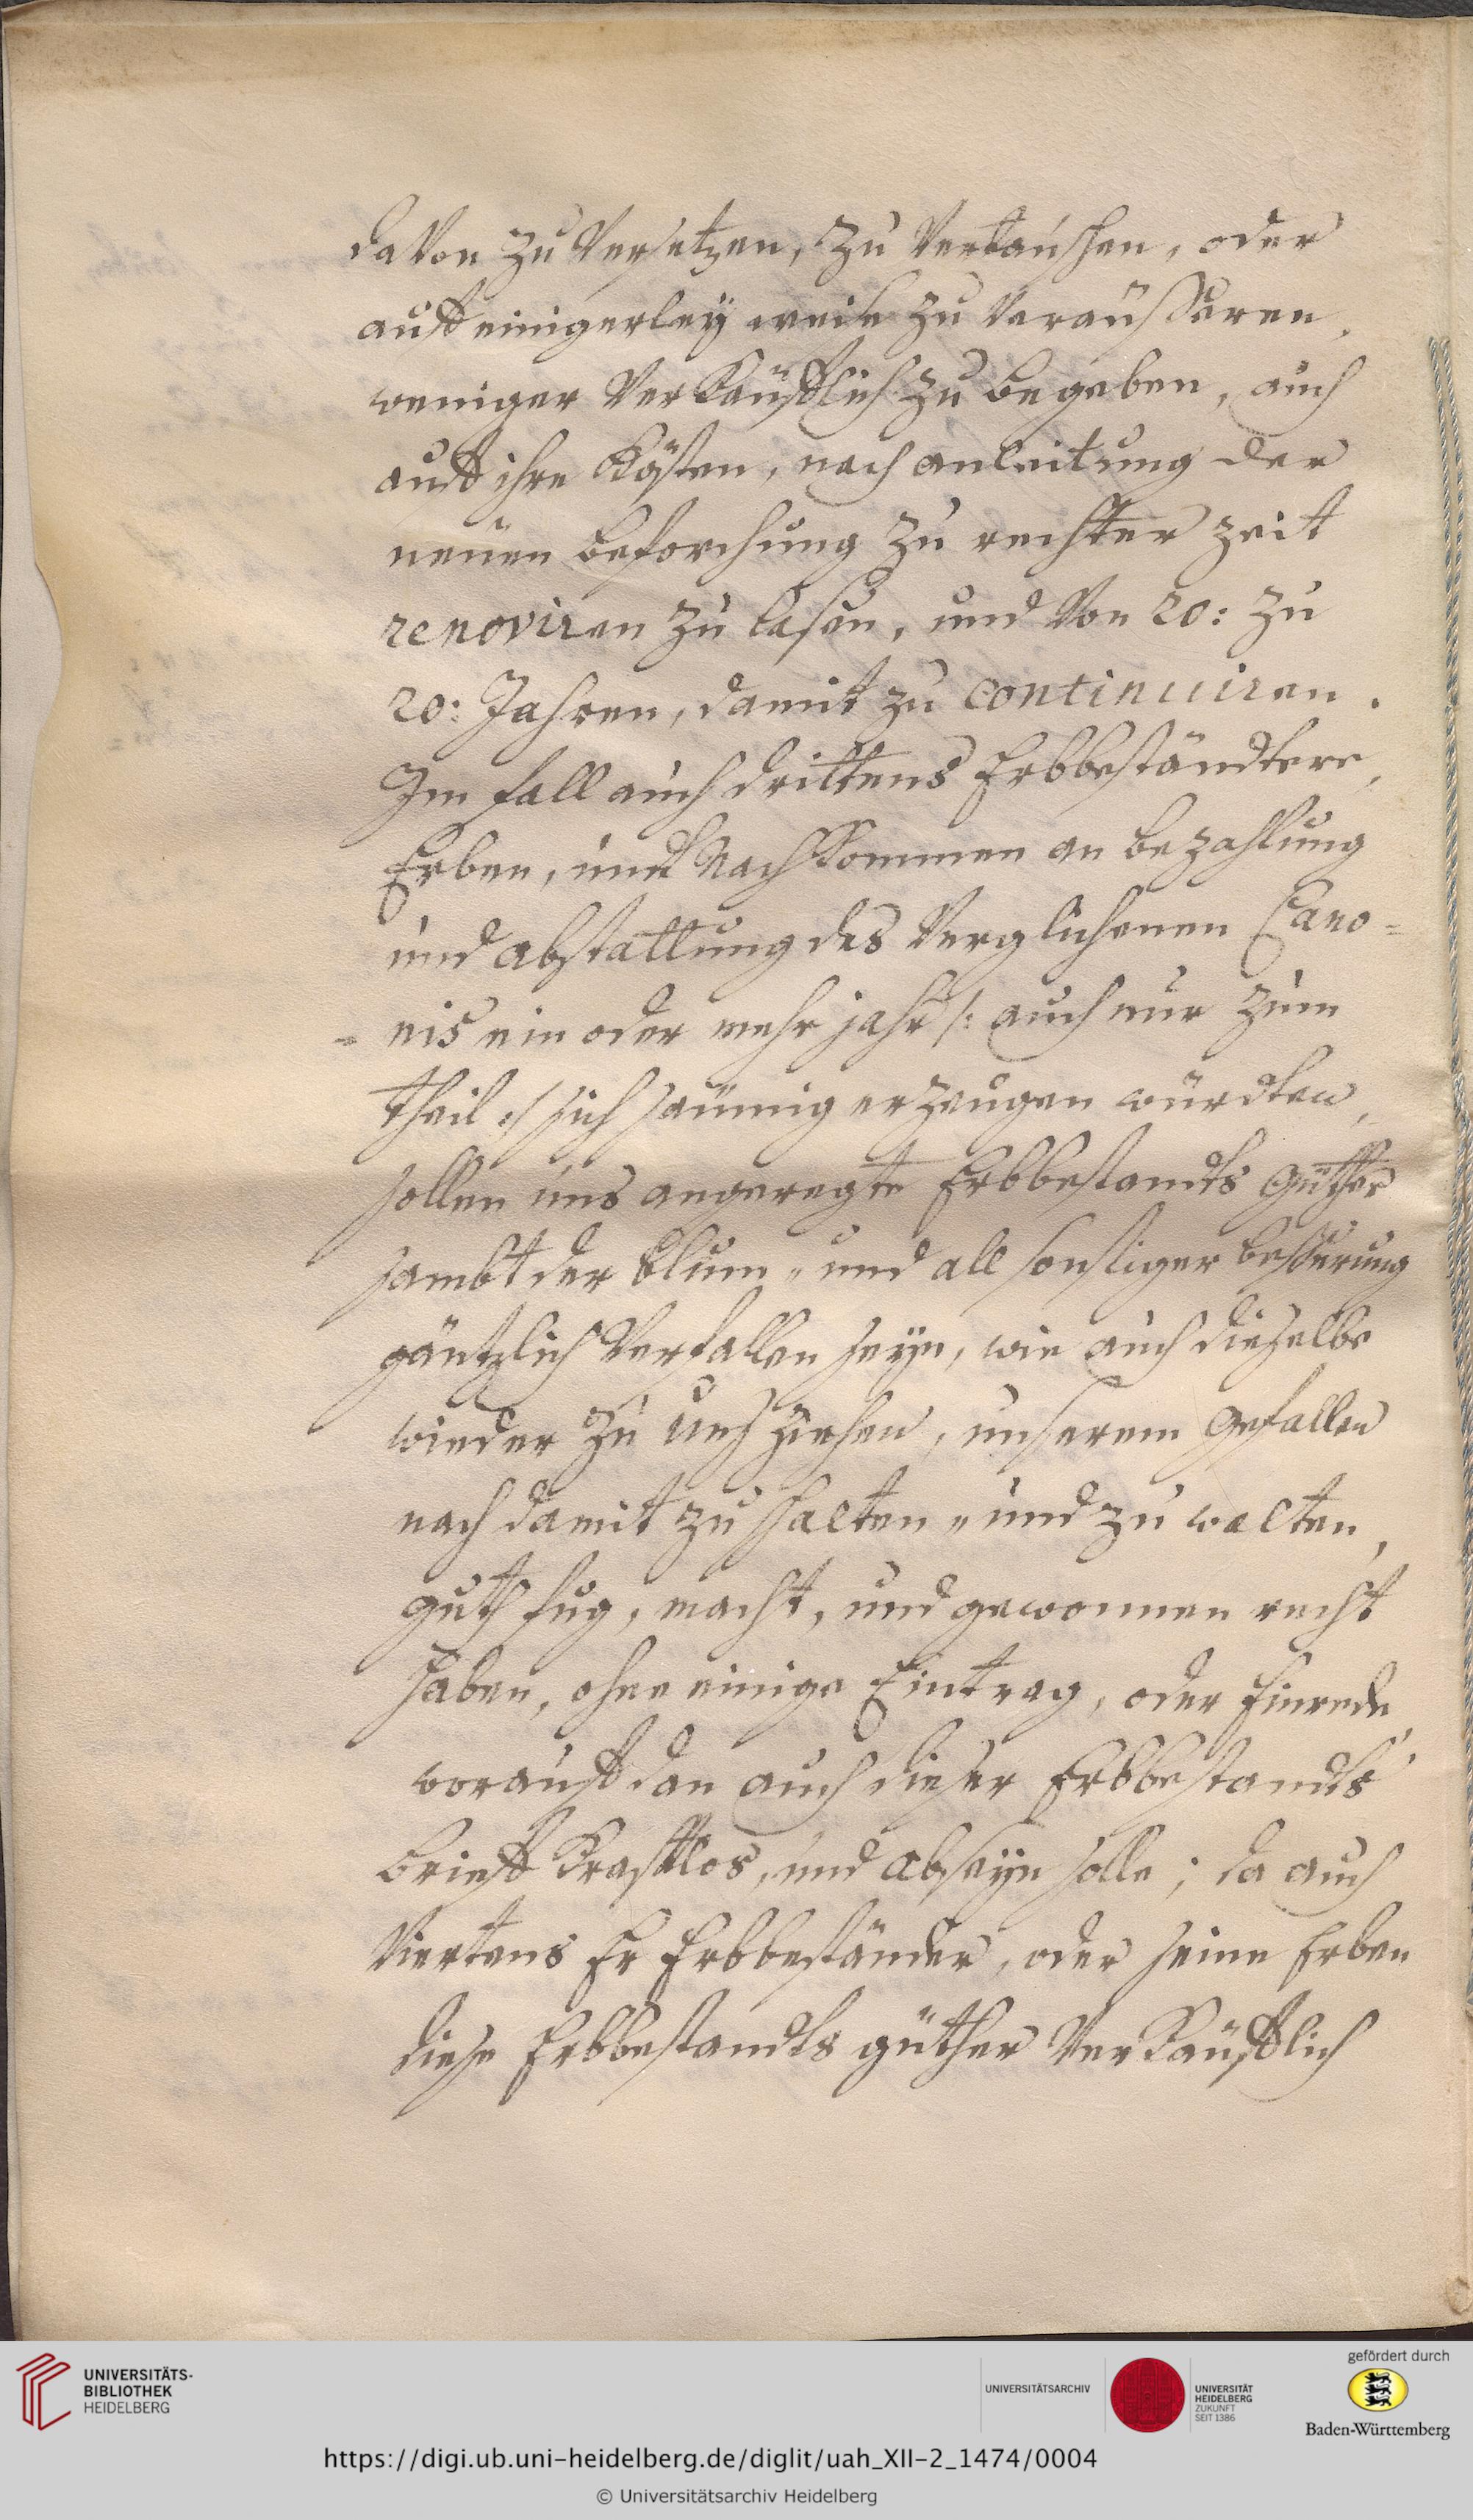 davon zu versetzen, zu vertauschen, oder
auff einigerley weise zu veräusseren,
weniger verkäufflich zu begeben, auch
auff ihre Kösten, nach anleitung der
neuen beforchung zu rechter zeit
renoviren zu lasen, und von 20: zu
20: Jahren, damit zu continuiren.
Im fall auch drittens Erbbeständtere,
Erben, und Nachkommen an bezahlung
und abstattung des verglichenen Cano=
=nis ein oder mehr jahr /: auch nur zum
theil :/ sich säumig erzeugen würdten,
sollen uns angeregte Erbbestandts güther
sambt der blum„ und all sonstiger besserung
gäntzlich verfallen seyn, wie auch dieselbe
wieder zu uns ziehen, unserem gefallen
nach damit zu schalten„ und zu walten,
guth fug, macht, und gewonnen recht
haben, ohne einige Eintrag, oder Einrede,
worauff dan auch dieser Erbbestandts
brieff Krafftlos, und abseyn solle; da auch
viertens Er Erbbeständer, oder seine Erben
diese Erbbestandts güther verkäufflich
UNIVERSITÄTS-
BIBLIOTHEK
HEIDELBERG
UNIVERSITÄTSARCHIV
UNIVERSITÄT
HEIDELBERG
ZUKUNFT
SEIT 1386
gefördert durch
Baden-Württemberg
https://digi.ub.uni-heidelberg.de/diglit/uah_XII-2_1474/0004
© Universitätsarchiv Heidelberg